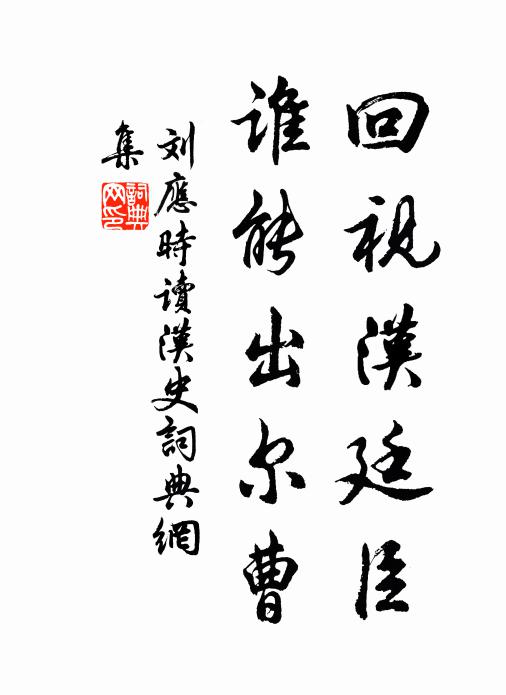 回視漢廷臣
誰能出尔曹
刘應時讀漢史詞典網
集
詞典網印